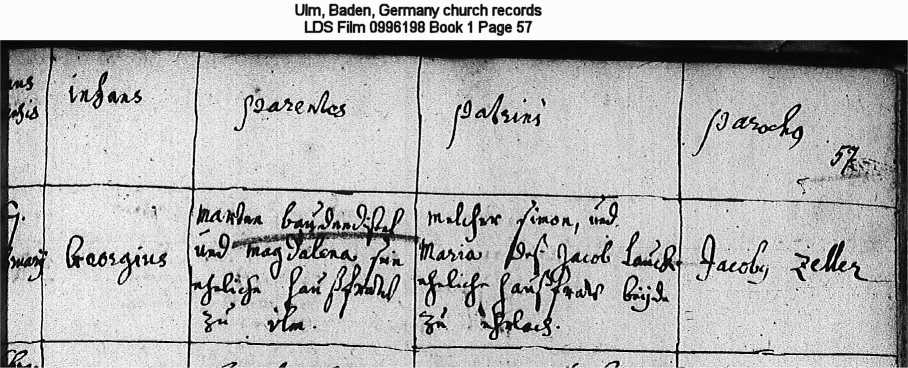 Ulm, Baden, Germany church records
LDS Film 0996198 Book 1 Page 57
infans
parentes
patrini
parochus
57
Georgius
Marten
und Magdalena sein
eheliche haußfraw
zu Ulm.
Melcher Simon, und
Maria deß Jacob
eheliche haußfraw beyde
zu
Jacobus Zeller